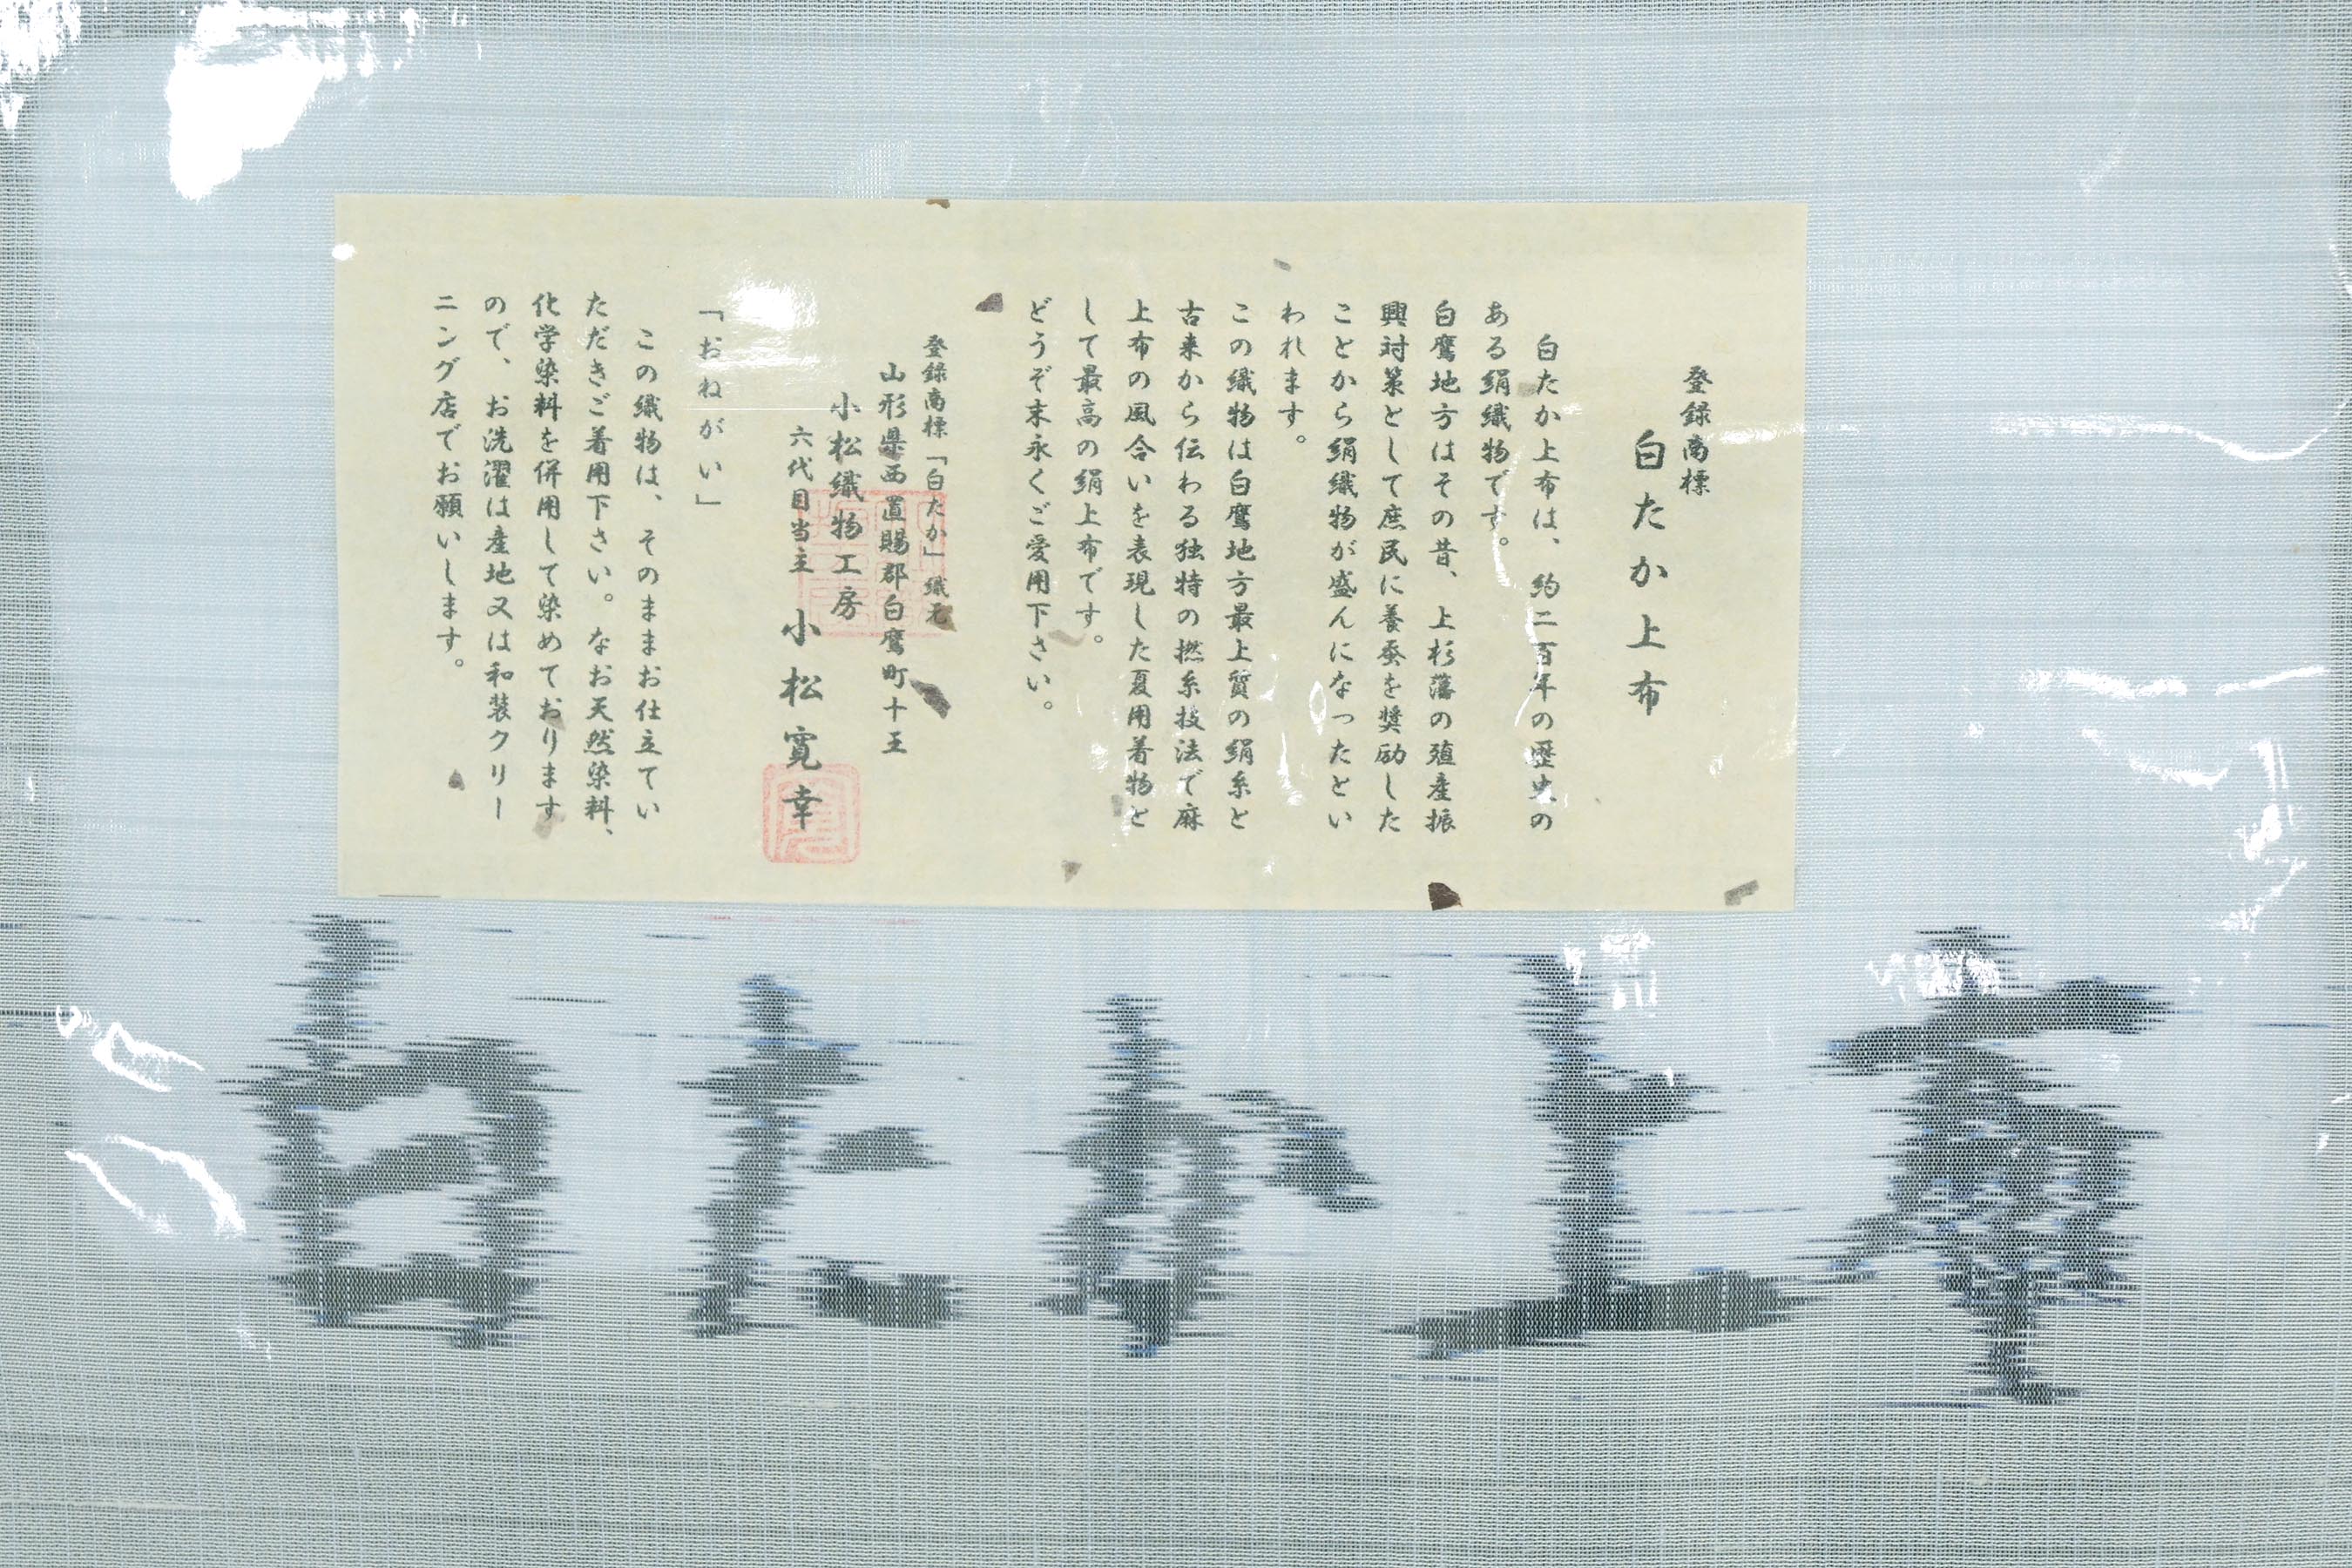 登録商標
白たか上布
白たか上布は、約二百年の歴史の
ある絹織物です。
白鷹地方はその昔、上杉藩の殖産振
興対策として庶民に養蚕を奨励した
ことから絹織物が盛んになったとい
われます。
この織物は白鷹地方最上質の絹糸と
古来から伝わる独特の撚糸技法で麻
上布の風合いを表現した夏用着物と
して最高の絹上布です。
どうぞ末永くご愛用下さい。
登録商標「白たか」織元
山形県西置賜郡白鷹町十王
小松織物工房
六代目当主 小松寛幸
「おねがい」
この織物は、そのままお仕立てい
ただきご着用下さい。なお天然染料、
化学染料を併用して染めております
ので、お洗濯は産地又は和装クリー
ニング店でお願いします。
白たか上布